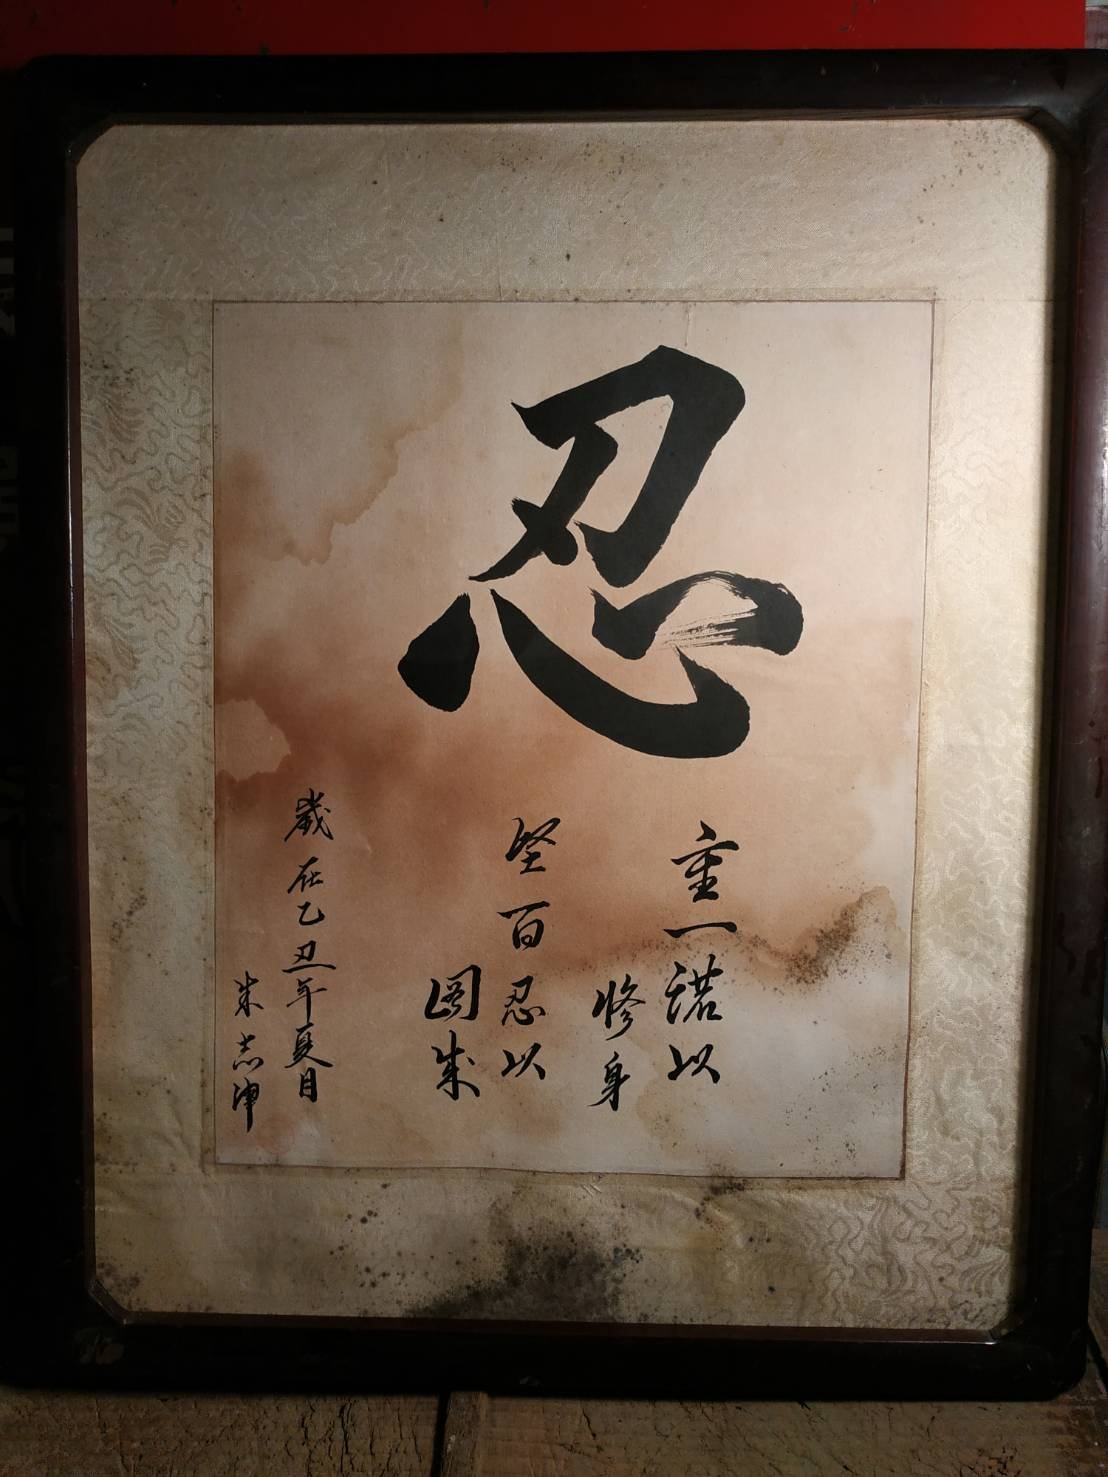 忍
重一諾以
修身
堅百忍以
圖成
歲在乙丑年夏月
朱志坤